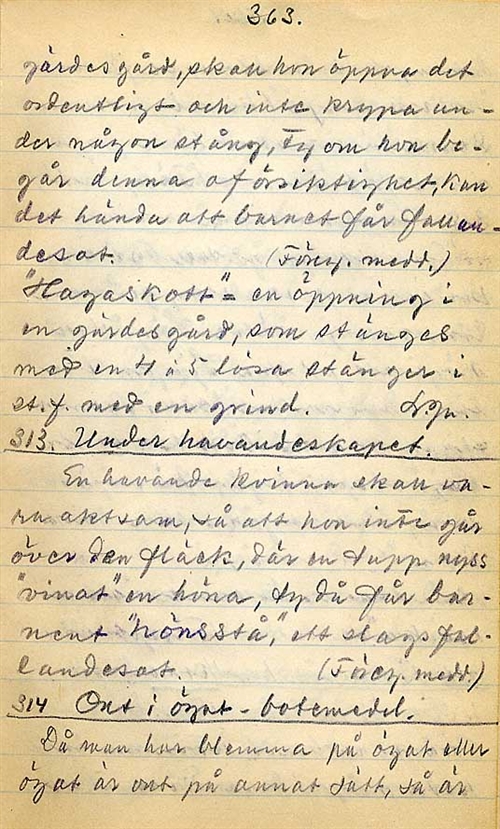 363.
gärdesgård, skall hon öppna det
ordentligt och inte krypa un-
der någon stång, ty om hon be-
går denna oförsiktighet, kan
det hända att barnet får fallan-
desot. (Föreg. medd.)
"Hagaskott" = en öppning i
en gärdesgård, som stänges
med en 4 à 5 lösa stänger i
st. f. med en grind.
313. Under havandeskapet.
En havande kvinna skall va-
ra aktsam, så att hon inte går
över den fläck, där en tupp nyss
"vinat" en höna, ty då får bar-
net "hönsstå," ett slags fal-
landesot. (Föreg. medd.)
314 Ont i ögat - botemedel.
Då man har blemma på ögat eller
ögat är ont på annat sätt, så är